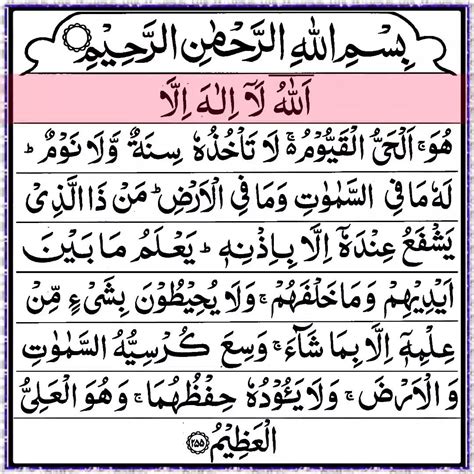 بِسْمِ اللهِ الرَّحْمٰنِ الرَّحِيْمِ
اَللهُ لَآ اِلٰهَ اِلَّا
هُوَ ۚ اَلْحَيُّ الْقَيُّوْمُ ۚ لَا تَاْخُذُهٗ سِنَةٌ وَّلَا نَوْمٌ ؕ
لَهٗ مَا فِي السَّمٰوٰتِ وَمَا فِي الْاَرْضِ ؕ مَنْ ذَا الَّذِيْ
يَشْفَعُ عِنْدَهٗٓ اِلَّا بِاِذْنِهٖ ؕ يَعْلَمُ مَا بَيْنَ
اَيْدِيْهِمْ وَمَا خَلْفَهُمْ ۚ وَلَا يُحِيْطُوْنَ بِشَيْءٍ مِّنْ
عِلْمِهٖٓ اِلَّا بِمَا شَآءَ ۚ وَسِعَ كُرْسِيُّهُ السَّمٰوٰتِ
وَالْاَرْضَ ۚ وَلَا يَـُٔوْدُهٗ حِفْظُهُمَا ۚ وَهُوَ الْعَلِيُّ
الْعَظِيْمُ ﴿۲۵۵﴾